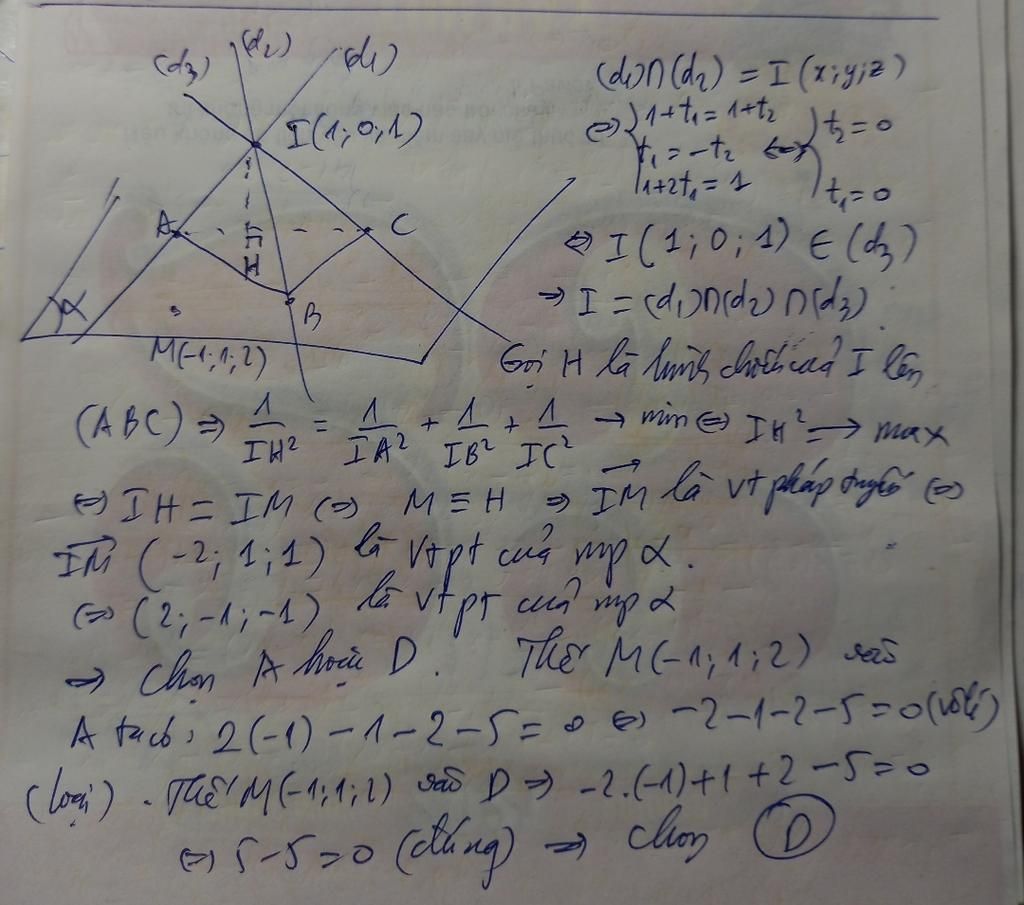 (d₃) (d₂) (d₁)
I(1;0;1)
A C
H
B
α
M(-1;1;2)
(d₁)∩(d₂) = I(x;y;z)
⇔ { 1+t₁ = 1+t₂
t₁ = -t₂ ⇔ { t₂ = 0
1+2t₁ = 1 t₁ = 0
⇔ I(1;0;1) ∈ (d₃)
→ I = (d₁)∩(d₂)∩(d₃)
Gọi H là hình chiếu của I lên
(ABC) ⇒ 1/IH² = 1/IA² + 1/IB² + 1/IC² → min ⇔ IH² → max
⇔ IH = IM ⇔ M ≡ H ⇒ IM⃗ là vt pháp tuyến ⇔
IM⃗ (-2; 1; 1) là vtpt của mp α.
⇔ (2; -1; -1) là vtpt của mp α
⇒ Chọn A hoặc D. Thế M(-1; 1; 2) vào
A ta có: 2(-1) - 1 - 2 - 5 = 0 ⇔ -2-1-2-5 = 0 (vô lí)
(loại). Thế M(-1;1;2) vào D ⇒ -2.(-1)+1+2-5 = 0
⇔ 5-5 = 0 (đúng) ⇒ chọn D